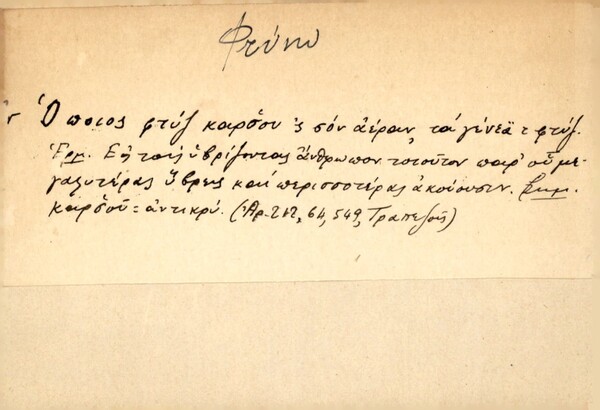 Φτύνω
Ὁ ποιος φτύζ καρσοῦ ς σόν ἀέραν, τά γένεä τ φτύζ.
Ἑρμ. Εἰς τούς ὑβρίζοντας ἄνθρωπον τοιοῦτον παρ' οὗ με-
γαλυτέρας ὕβρεις καί περισσοτέρας ἀκούουσιν. Σημ.
καρσοῦ = ἀντικρύ. (Ἀρ. 212, 64, 549, Τραπεζοῦς)